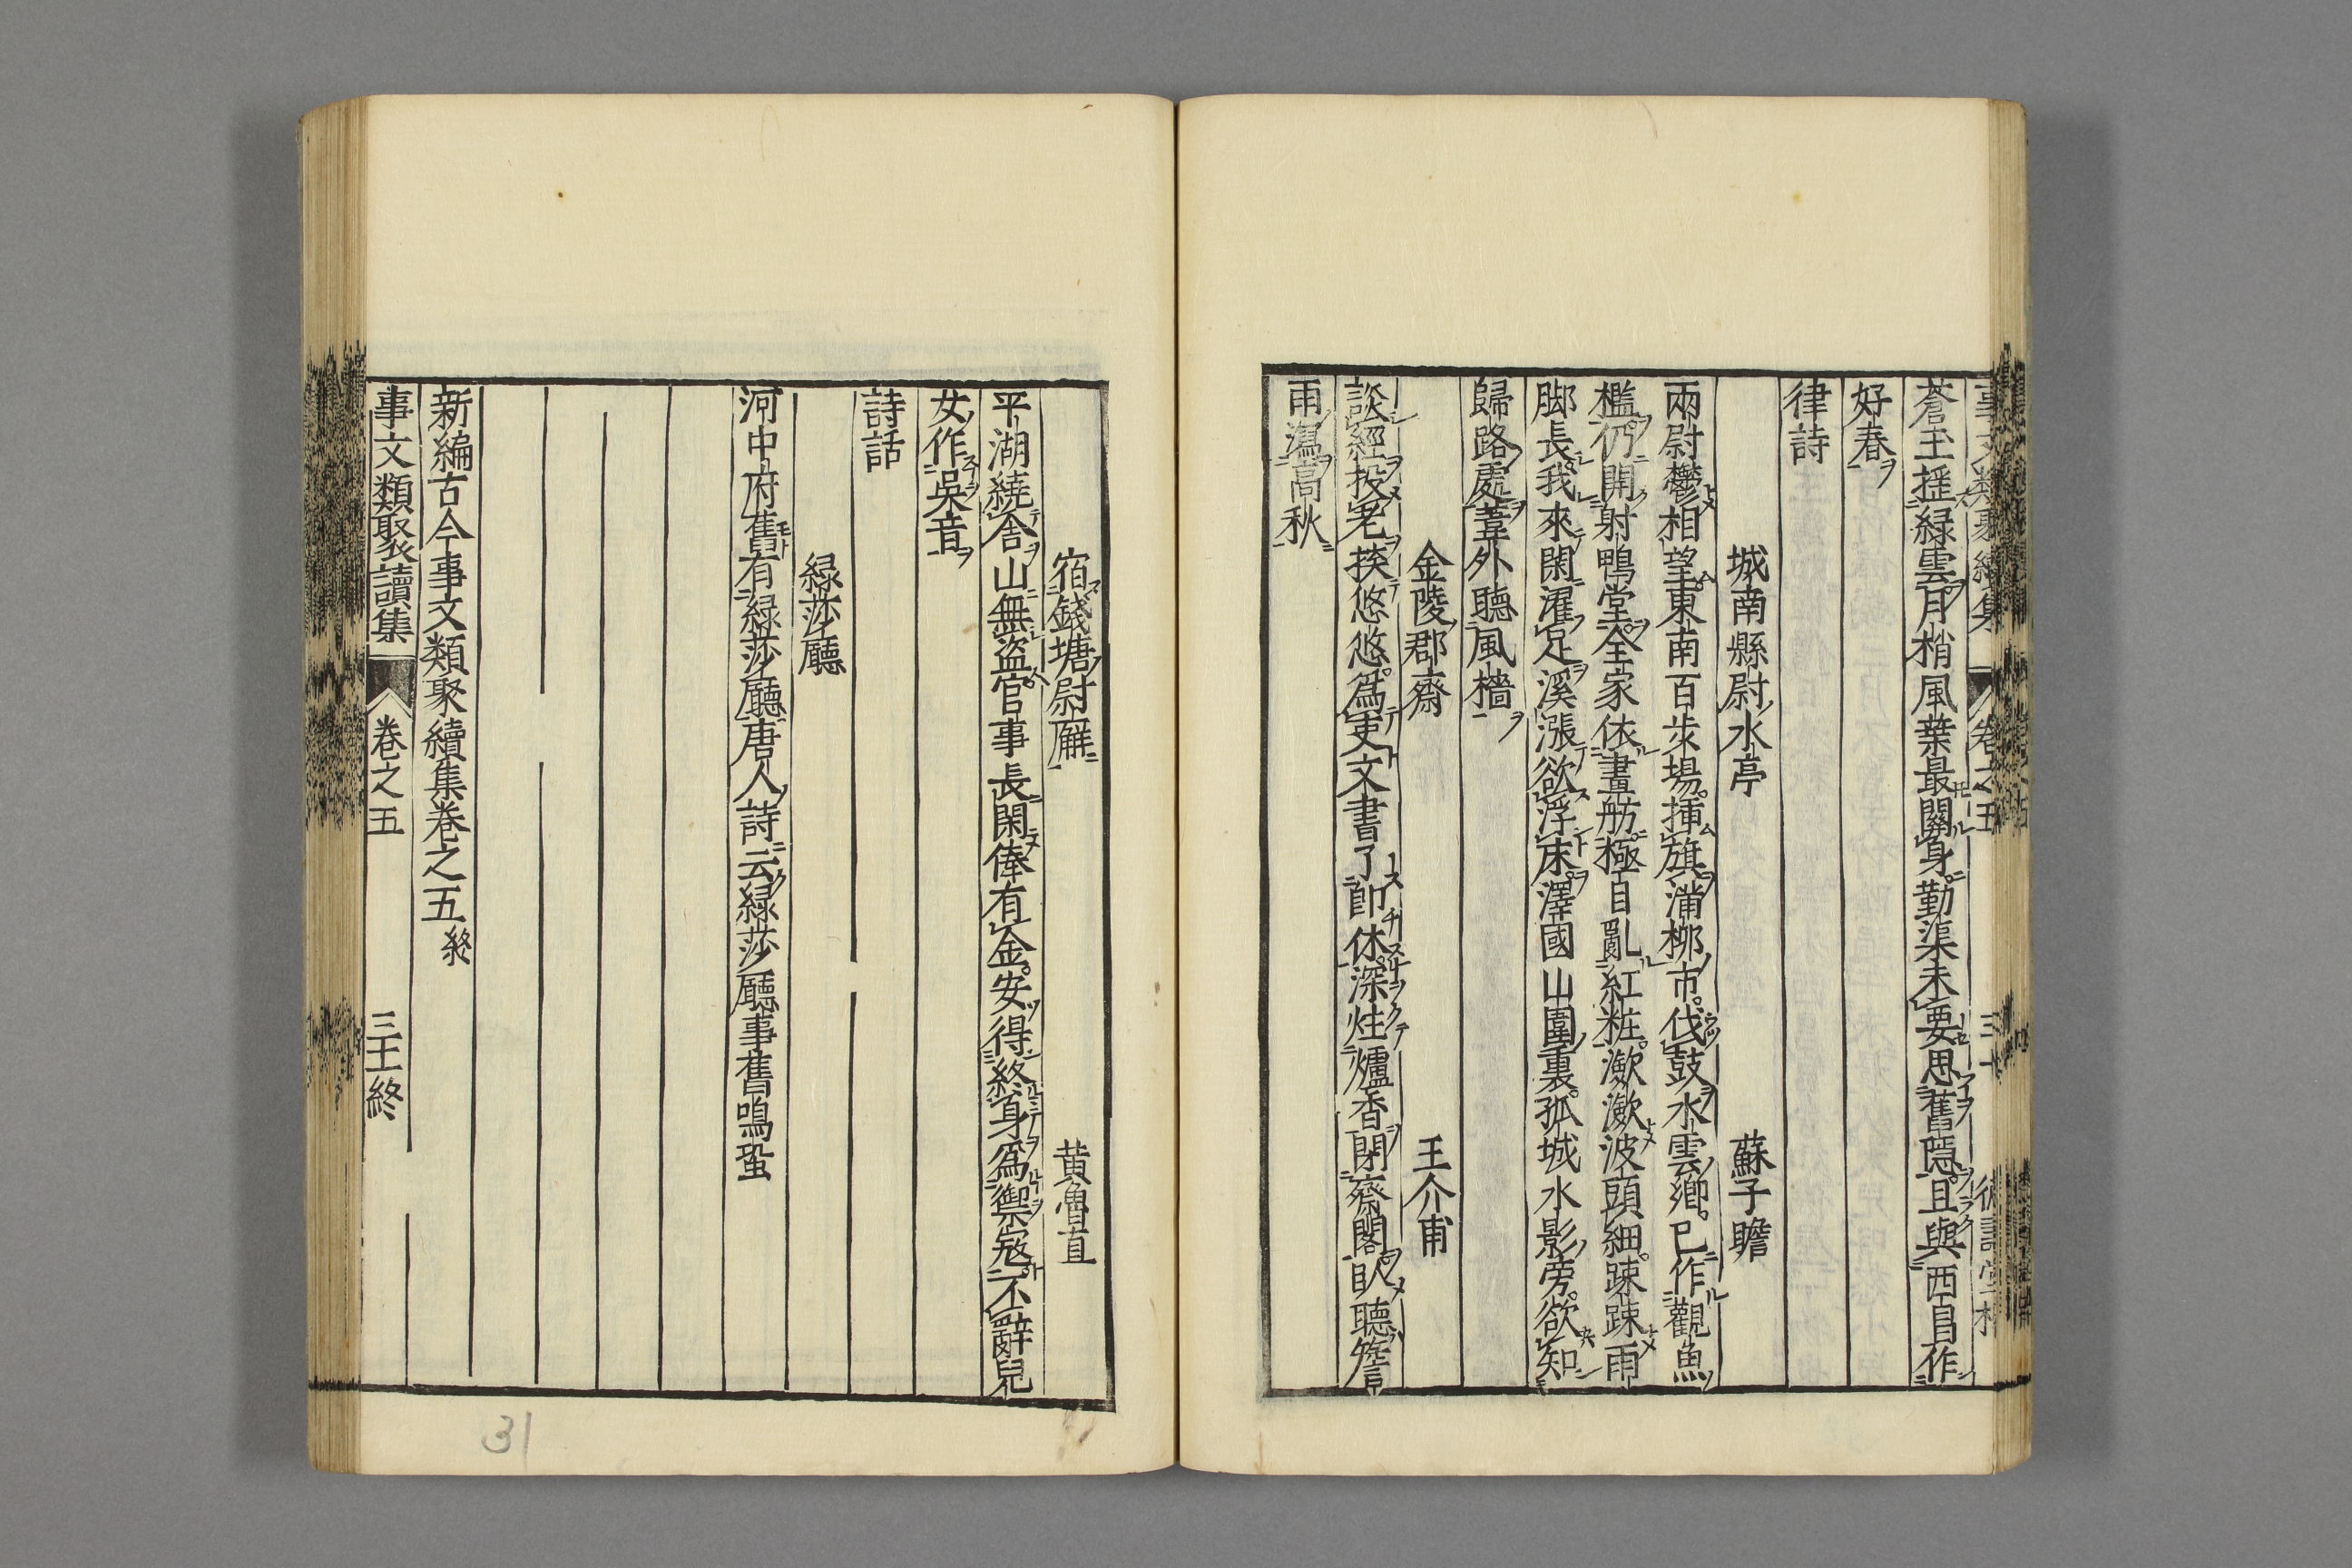 蒼玉揺緑雲月梢風葉最關身勤渠未要思舊隠且與西自作
好春
律詩
城南縣尉水亭 蘇子瞻
兩尉鬱相望東南百歩場揷旗蒲栁市伐鼓水雲鄉已作觀魚
檻仍開射鴨堂全家依畫舫極目亂紅粧瀲瀲波頭細踈踈雨
脚長我來閑濯足溪漲欲浮床澤國山圍裏孤城水影旁欲知
歸路處葦外聽風檣
金陵郡齋 王介甫
談經投老揆悠悠爲吏文書了卽休深炷爐香閉齋閣臥聽簷
雨瀉高秋
宿錢塘尉廨 黄魯直
平湖繞舍山無盗官事長閑俸有金安得終身爲禦㓂不辭兒
女作吳音
詩話
緑莎廳
河中府舊有緑莎廳唐人詩云緑莎廳事舊鳴蛩
新編古今事文類聚續集卷之五 終
事文類聚讀集 卷之五 三十一終
31